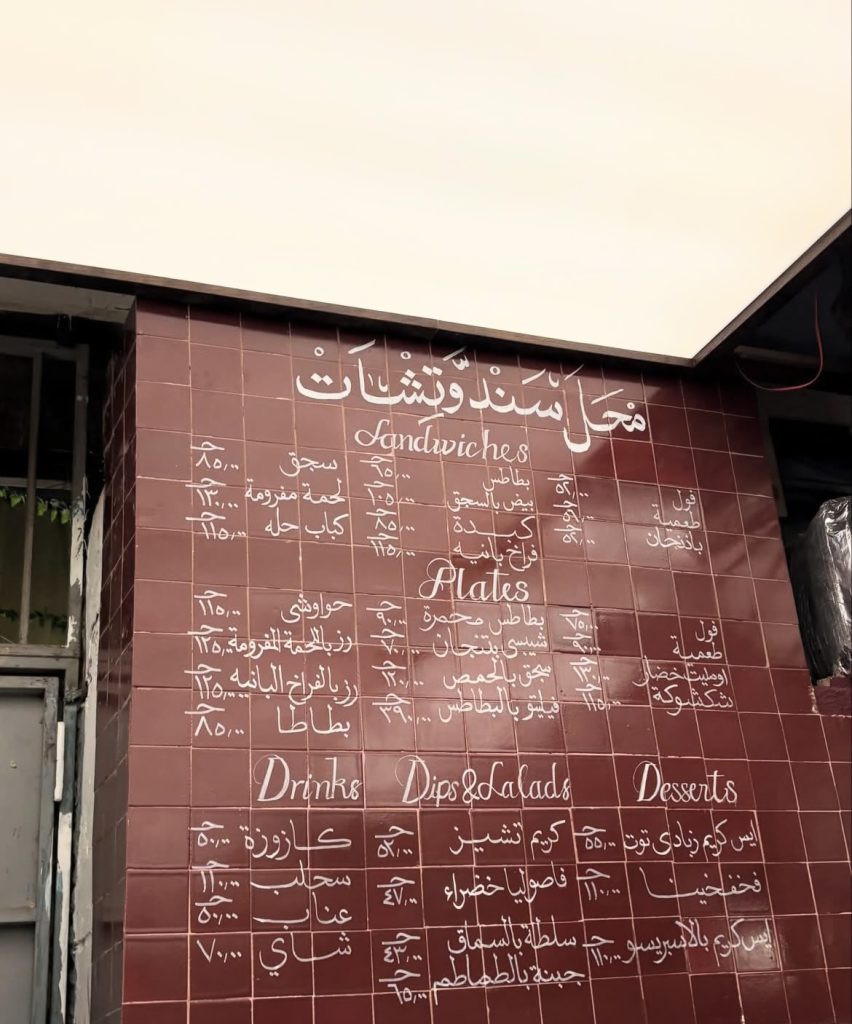 محل سندوتشات
Sandwiches
فول جـ ٥٢,٠٠
طعمية جـ
باذنجان جـ
بطاطس جـ ٦٥,٠٠
بيض بالسجق جـ ١٠٥,٠٠
كبدة جـ ٨٥,٠٠
فراخ بانيه جـ ١١٥,٠٠
سجق جـ ٨٥,٠٠
لحمة مفرومة جـ ١٣٠,٠٠
كباب حله جـ ١١٥,٠٠
Plates
فول جـ ٧٥,٠٠
طعمية جـ ٩٠,٠٠
اومليت خضار جـ ١٣٠,٠٠
شكشوكة جـ ١١٥,٠٠
بطاطس محمرة جـ ٩٠,٠٠
شيبسى بتنجان جـ ٧٠,٠٠
سجق بالحمص جـ ١٢٠,٠٠
فيليتو بالبطاطس جـ ٢٩٠,٠٠
حواوشى جـ ١١٥,٠٠
رز باللحمة المفرومة جـ ١٢٥,٠٠
رز بالفراخ البانيه جـ ١٢٥,٠٠
بطاطا جـ ٨٥,٠٠
Desserts
ايس كريم زبادى توت جـ ٥٥,٠٠
فخفخينا جـ ١١٠,٠٠
ايس كريم بالاسبريسو جـ ١١٠,٠٠
Dips & Salads
كريم تشيز جـ ٥٢,٠٠
فاصوليا خضراء جـ ٤٧,٠٠
سلطة بالسماق جـ ٤٣,٠٠
جبنة بالطماطم جـ ٦٥,٠٠
Drinks
كازوزة جـ ٥٠,٠٠
سحلب جـ ١١٠,٠٠
عناب جـ ٥٠,٠٠
شاي جـ ٧٠,٠٠